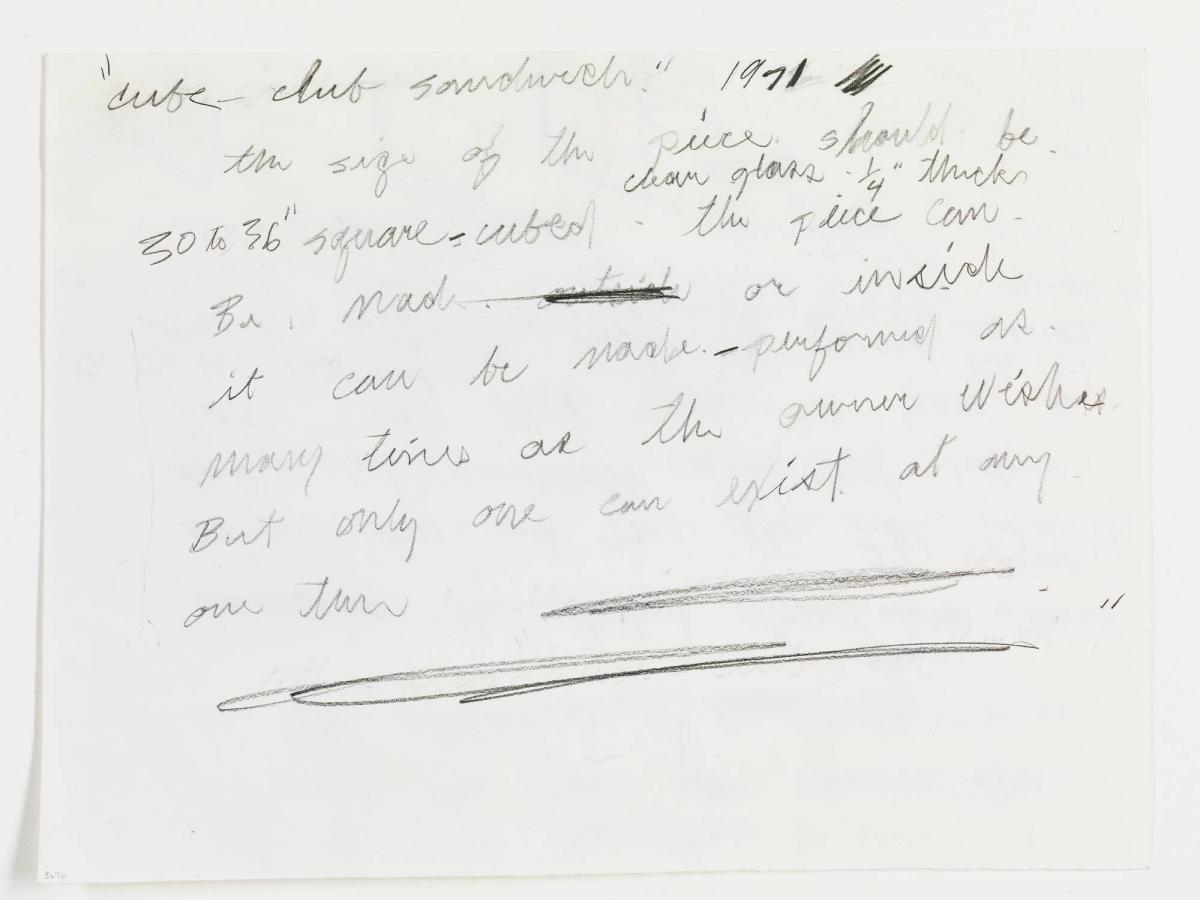 "cube - club sandwich." 1971
the size of the piece should be
clear glass 1/4" thick
30 to 36" square - cubed - the piece can
Be made outside or inside
it can be made - performed as
many times as the owner wishes
But only one can exist at any
one time "
3690